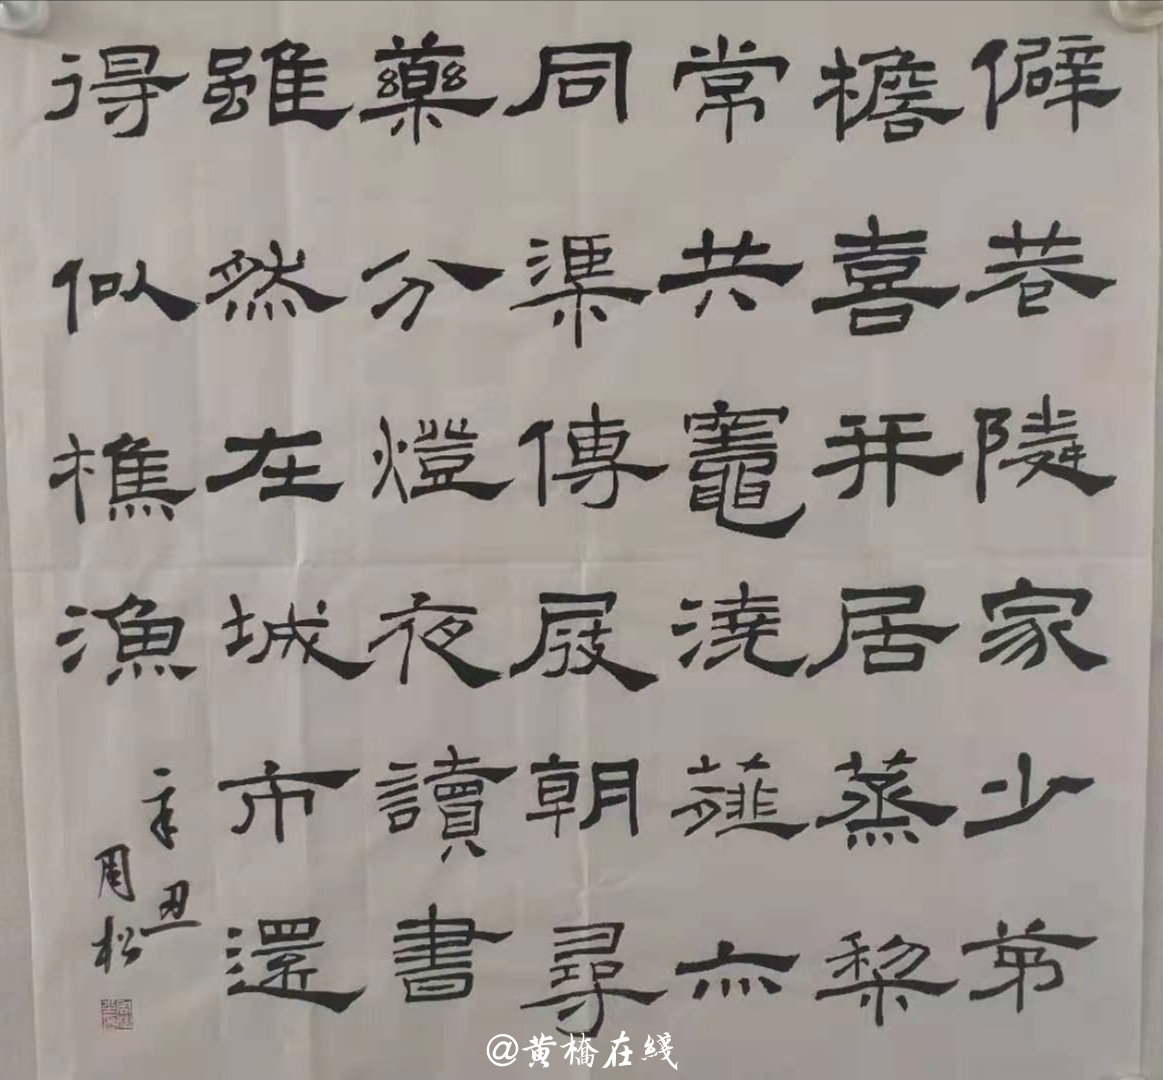 僻巷隣家少茅
檐喜并居蒸梨
常共竈澆薤亦
同渠傳屐朝尋
藥分燈夜讀書
雖然在城市還
得似樵漁
辛丑
周松
@黄橋在綫